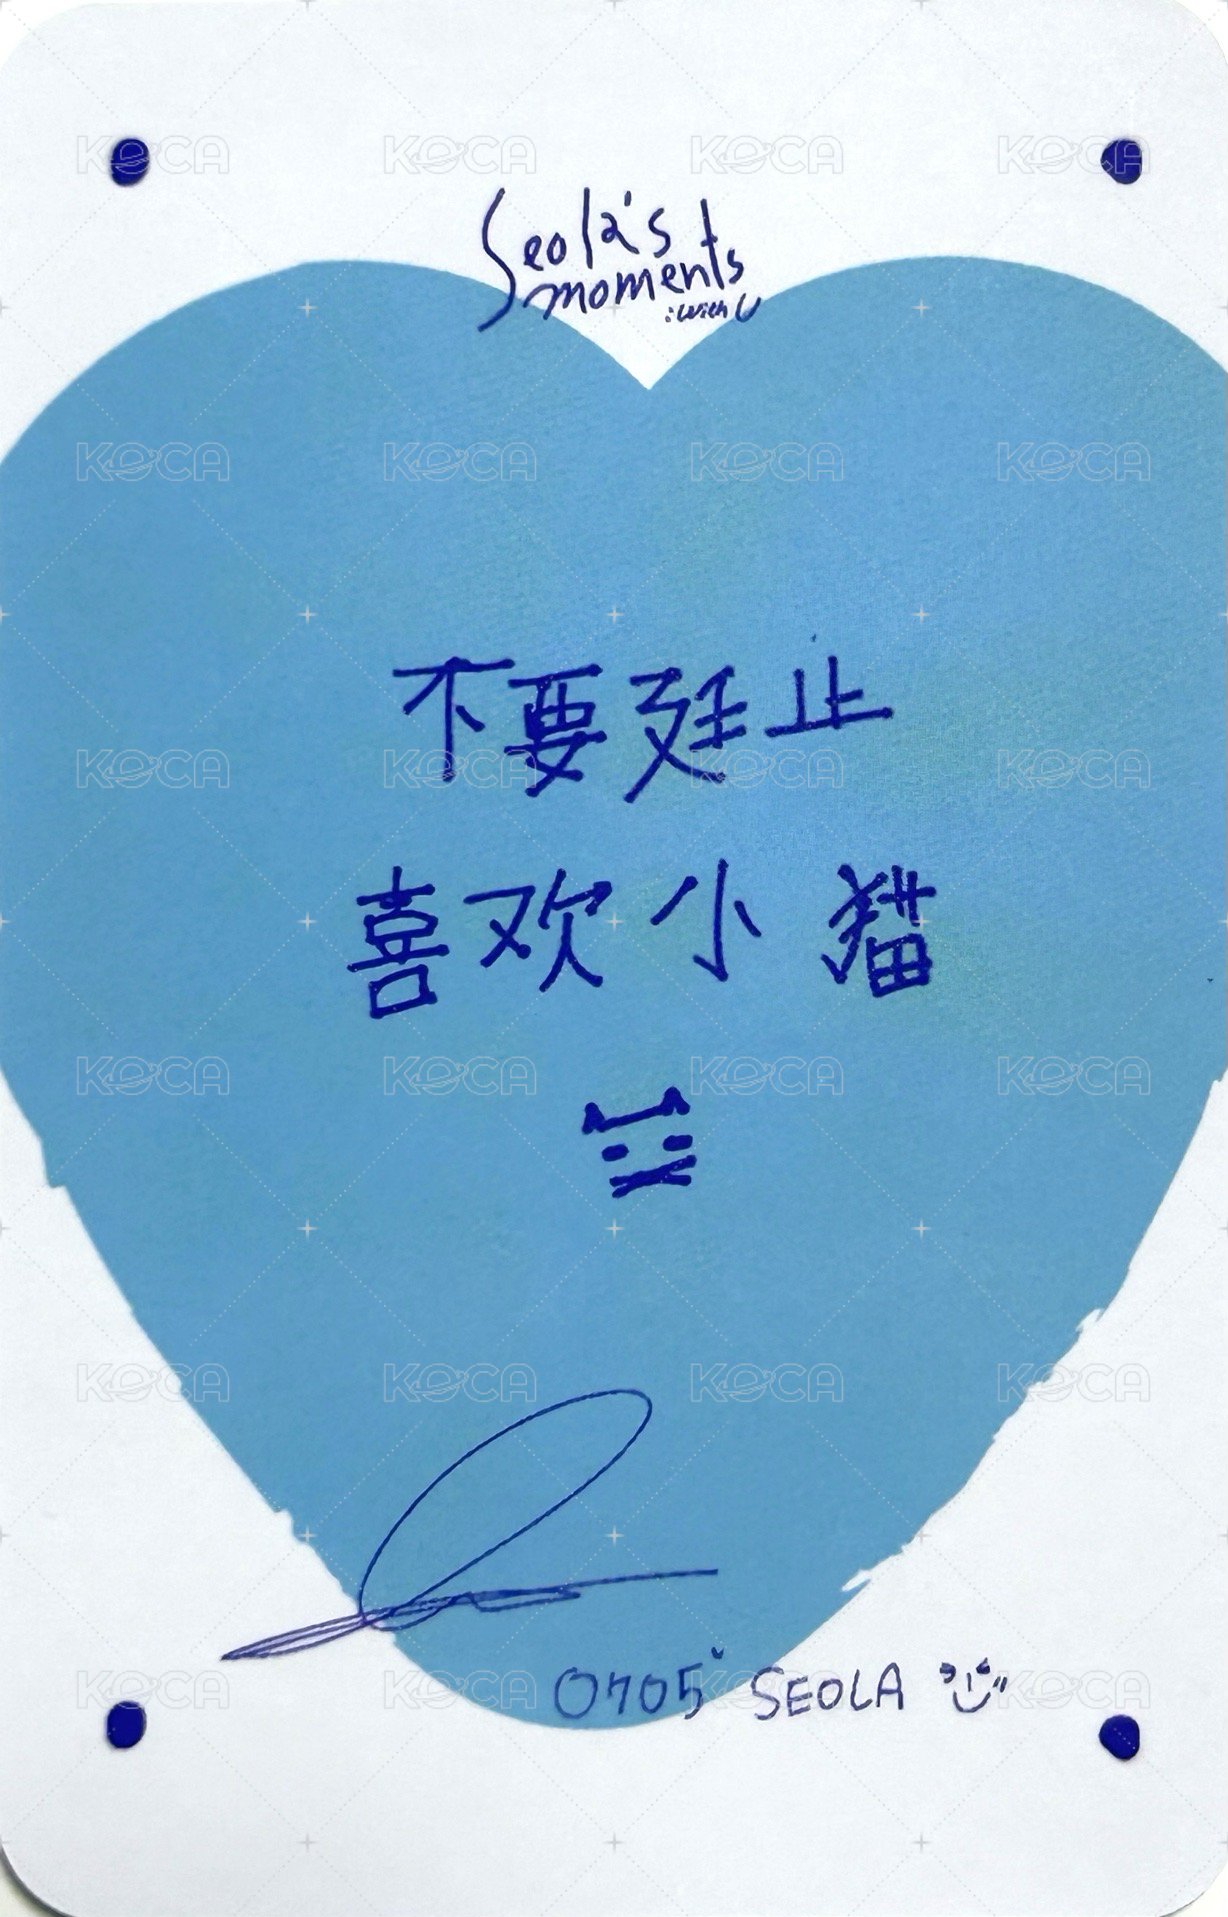 Seola's
moments
:with U
不要廷止
喜欢小猫
0705 SEOLA